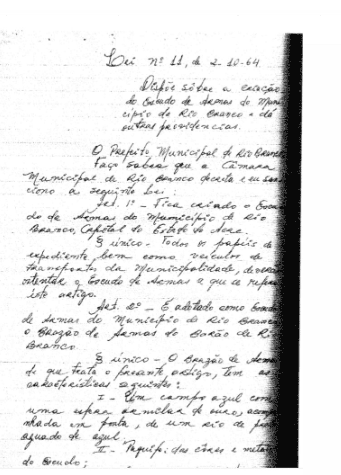 Lei nº 11, de 2-10-64.
Dispõe sôbre a criação
do Escudo de Armas do Muni
cípio de Rio Branco e dá
outras providencias.
O Prefeito Municipal de Rio Branco
Faço saber que a Câmara
Municipal de Rio Branco decreta e eu san
ciono a seguinte Lei:
Art. 1º - Fica criado o Escu
do de Armas do Município de Rio
Branco, Capital do Estado do Acre.
§ único - Todos os papéis de
expediente, bem como veículos de
transportes da Municipalidade, deverão
ostentar o Escudo de Armas a que se refere
êste artigo.
Art. 2º - É adotado como Escudo
de Armas do Município de Rio Branco
o Brazão de Armas do Barão de Rio
Branco.
§ único - O Brazão de Armas
de que trata o presente artigo, tem as
características seguintes:
I - Um campo azul com
uma esfera armilar de ouro, acompa
nhada em ponta, de um rio de prata
aguado de azul.
II - Paquife: das côres e metais
do Escudo;